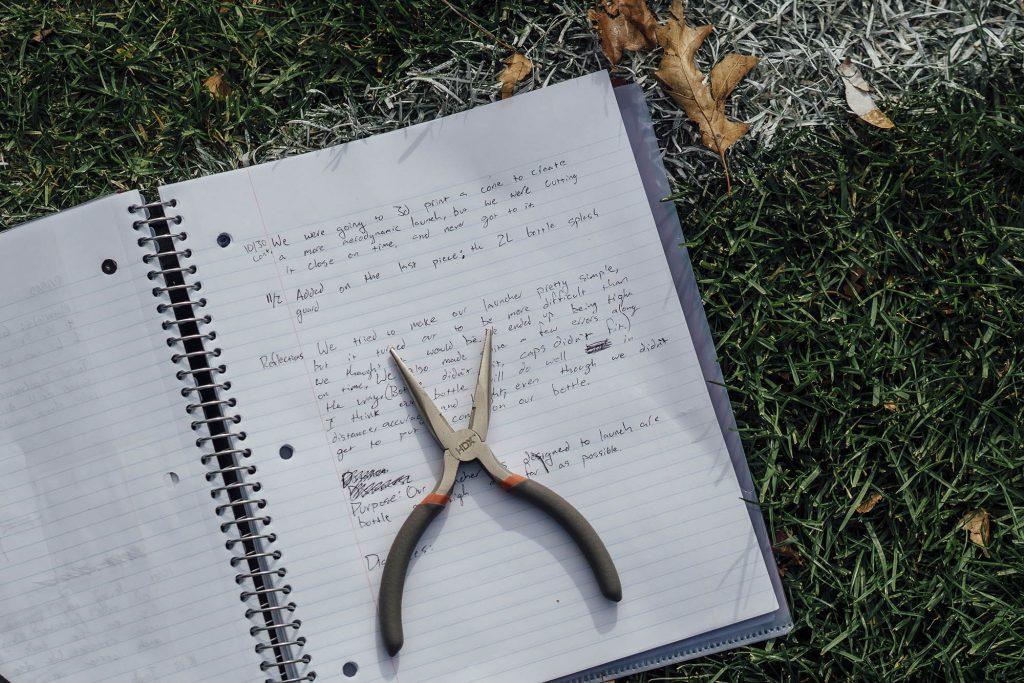 10/30 We were going to 3d print a cone to create
cont. a more aerodynamic launch, but we were cutting
it close on time, and never got to it
11/2 Added on the last piece; the 2L bottle splash
guard
Reflections We tried to make our launcher pretty simple,
but it turned our to be more difficult than
we thought would be. We ended up being tight
on time. We also made a few errors along
the way. (Bott didn't caps didn't fit)
I think our bottle will do well in
distance, accuracy, and even though we didn't
get to put cone on our bottle.
Purpose: Our launcher designed to launch are
bottle as high as possible.
HDX